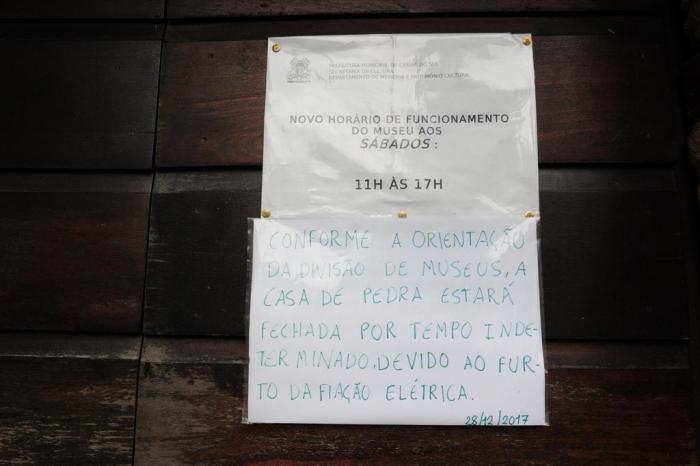 PREFEITURA MUNICIPAL DE CAXIAS DO SUL
SECRETARIA DA CULTURA
DEPARTAMENTO DE MEMÓRIA E PATRIMÔNIO CULTURAL
NOVO HORÁRIO DE FUNCIONAMENTO
DO MUSEU AOS
SÁBADOS :
11H ÀS 17H
CONFORME A ORIENTAÇÃO
DA DIVISÃO DE MUSEUS, A
CASA DE PEDRA ESTARÁ
FECHADA POR TEMPO INDE-
TERMINADO, DEVIDO AO FUR-
TO DA FIAÇÃO ELÉTRICA.
28/12/2017